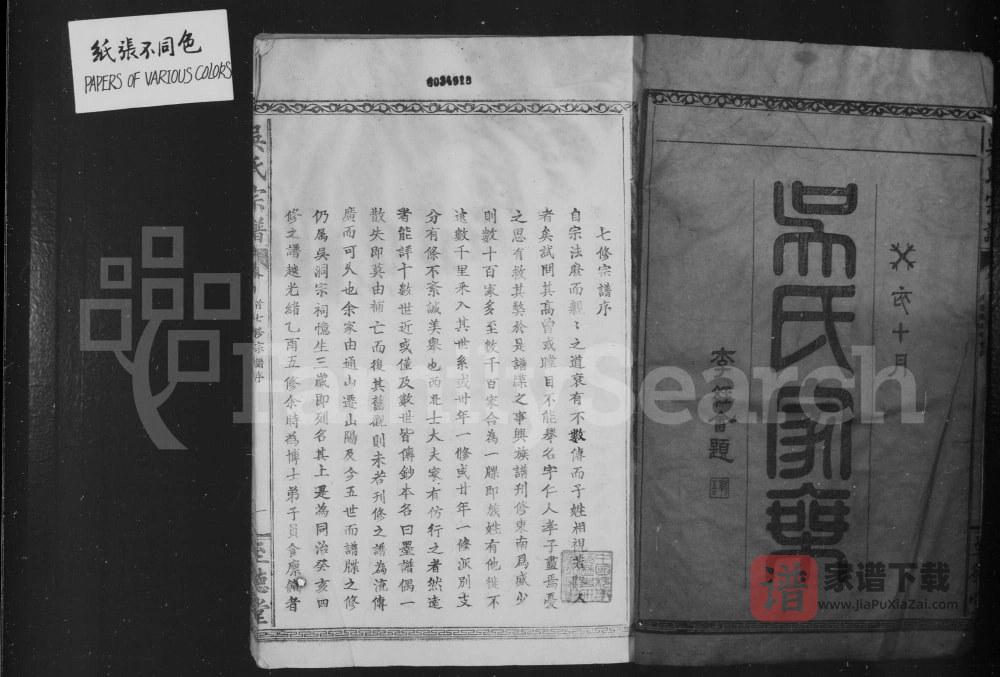 紙張不同色
PAPERS OF VARIOUS COLORS
6034618
吳氏家乘
亥十月
題
七修宗譜序
自宗法廢而親々之道衰有不數傳而子姓相視若路人
者矣試問其高曾或瞠目不能舉名字仁人孝子盡焉憂
之思有救其獘於是譜牒之事興族譜刊修東南爲盛少
則數十百家多至數千百家合為一牒即族姓有他徙不
遠數千里來入其世系或卅年一修或廿年一修派別支
分有條不紊誠美舉也西北士大夫家有仿行之者然遠
者能詳十數世近或僅及數世皆傳鈔本名曰墨譜偶一
散失即莫由補亡而後其舊觀則未若刋修之譜為流傳
廣而可久也余家由通山遷山陽及今五世而譜牒之修
仍属吳洞宗祠憶生三歲即列名其上是為同治癸亥四
修之譜越光緒乙酉五修余時為博士弟子員食廪餼者
吳氏宗譜
卷首七修宗譜序
一
至德堂
FamilySearch
谱
家谱下载
www.JiaPuXiaZai.com